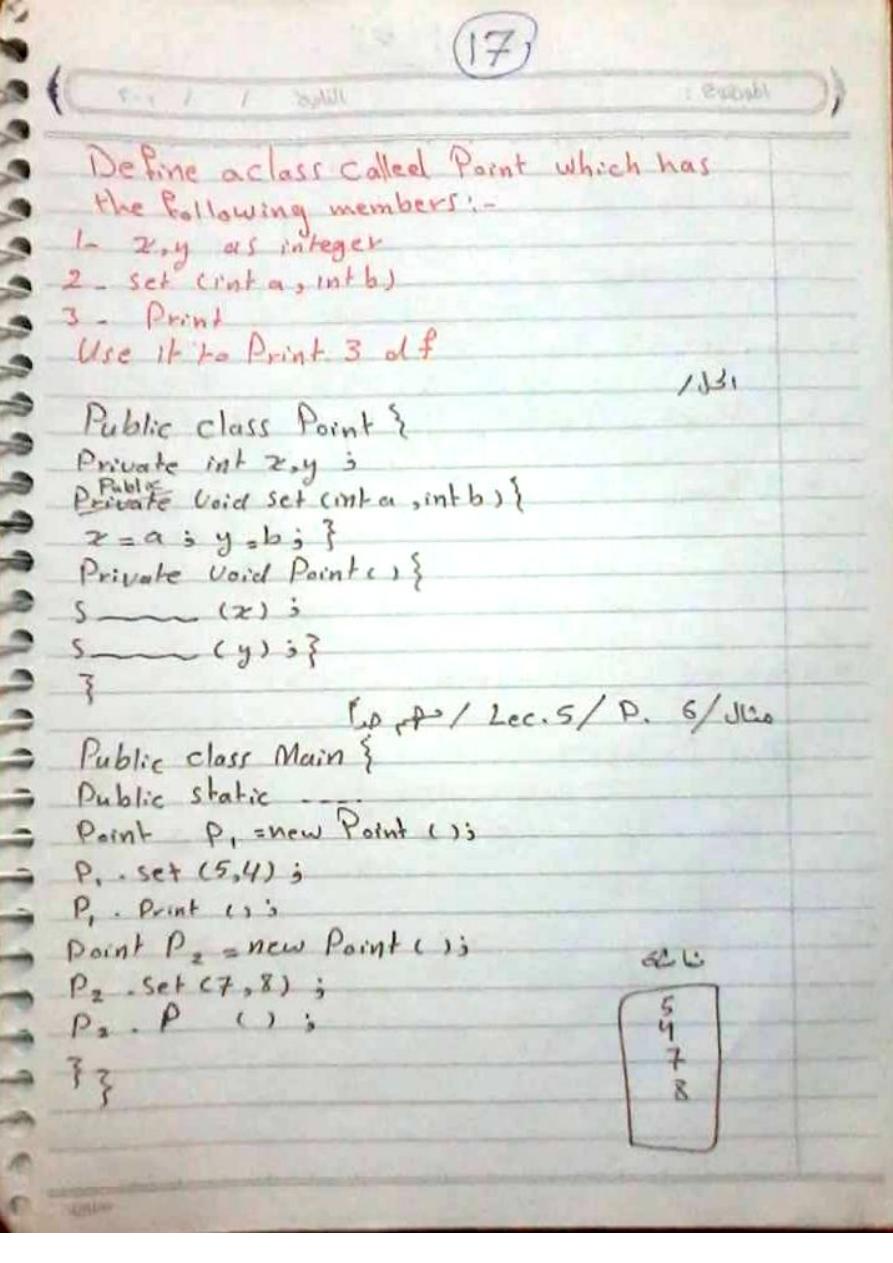 17
التاريخ / / ٢٠١
الموضوع :
Define a class called Point which has
the following members:-
1- x,y as integer
2- set (int a, int b)
3- Print
Use it to Print 3 df
الحل/
Public class Point {
Private int x,y ;
Public
Private Void set (int a, int b) {
x = a ; y = b; }
Private Void Point () {
S______ (x) ;
S______ (y) ; }
}
مثال/ 6 .Lec.5/ P /
Public class Main {
Public static ----
Point P1 = new Point ();
P1 . set (5,4) ;
P1 . Print () ;
Point P2 = new Point ();
P2 . set (7,8) ;
P2 . P () ;
} }
شاشة
5
4
7
8